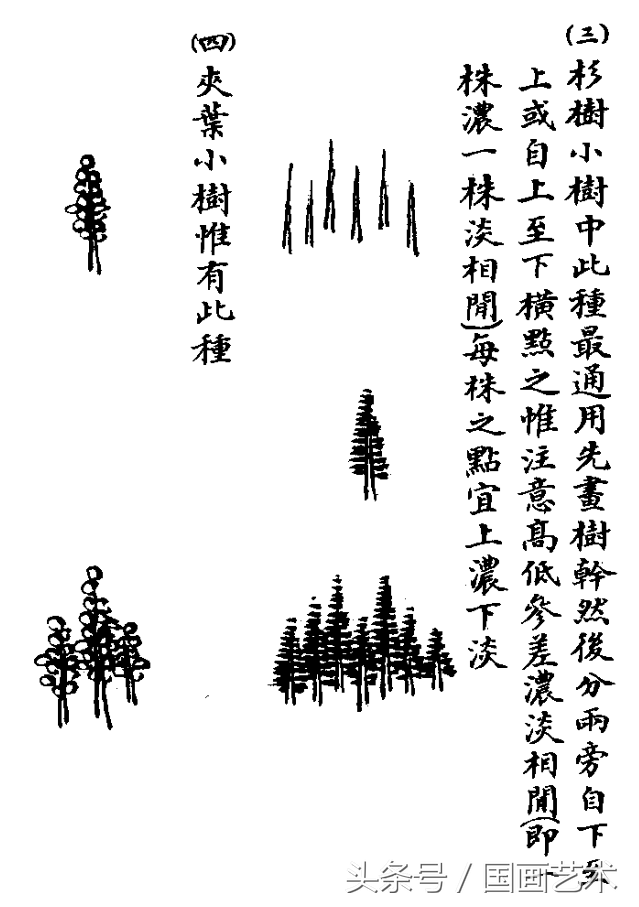 (三)
杉樹小樹中此種最通用先畫樹幹然後分兩旁自下至
上或自上至下橫點之惟注意高低參差濃淡相閒(即一
株濃一株淡相閒)每株之點宜上濃下淡
(四)
夾葉小樹惟有此種
头条号 / 国画艺术